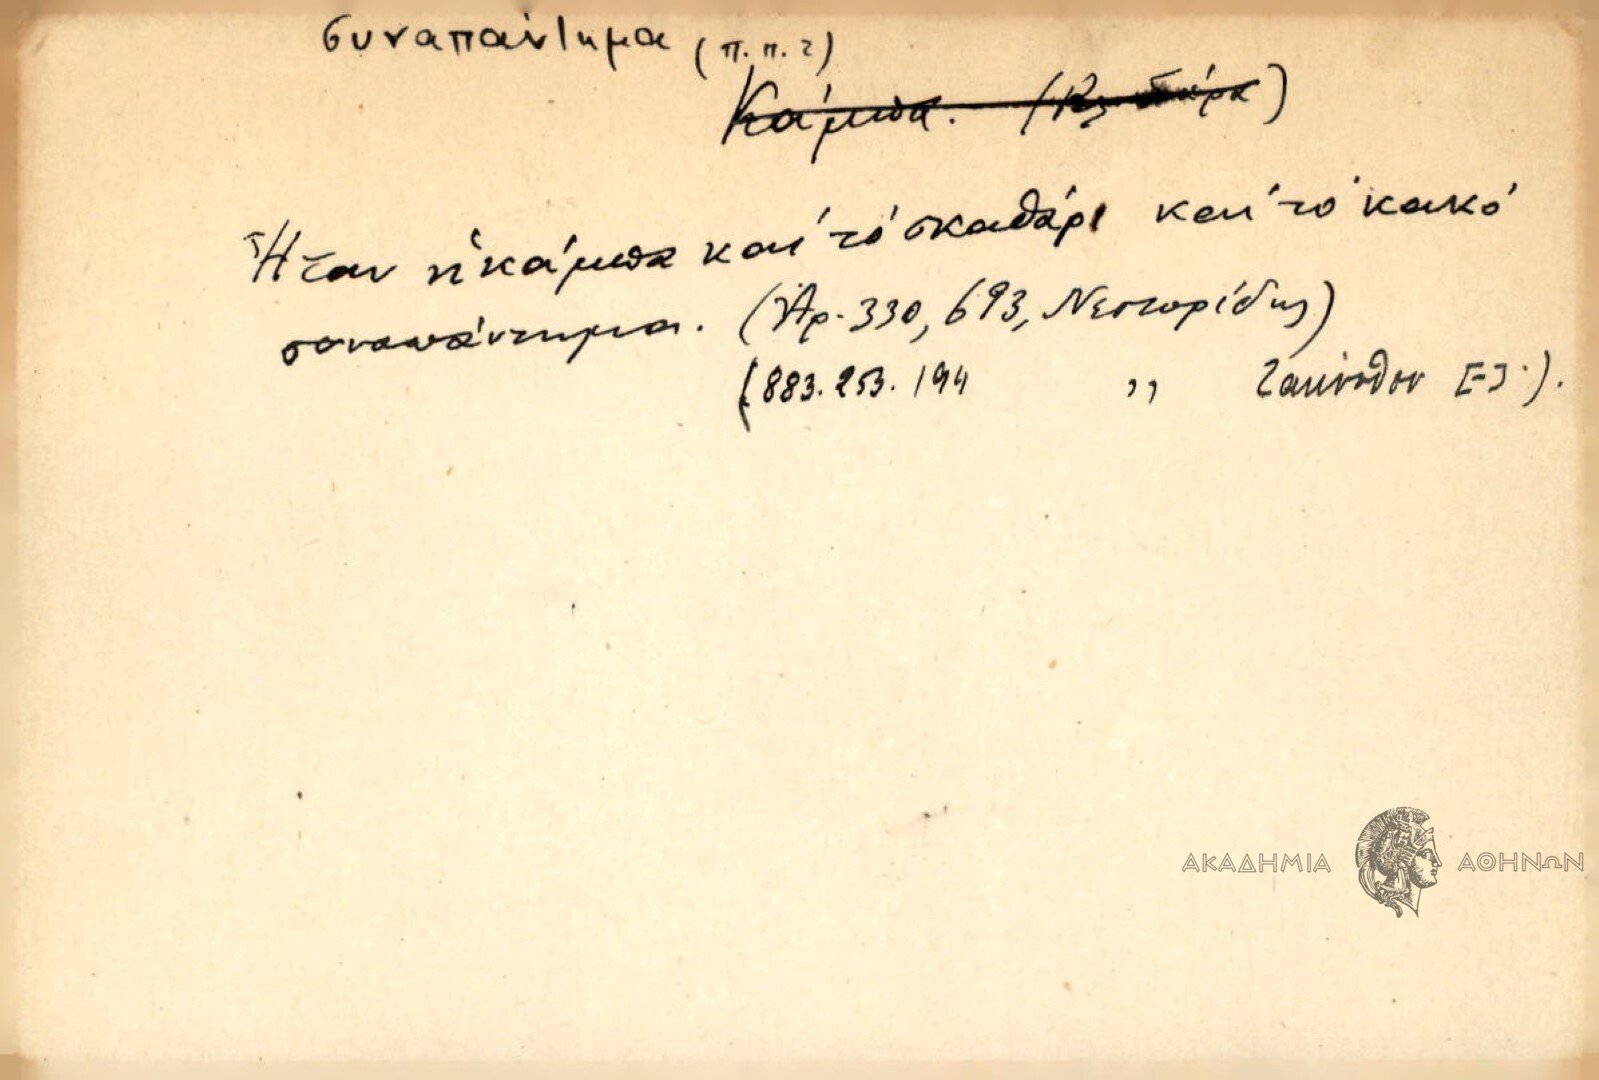 συναπάντημα (π.π. 2)
Κάμπα.
Ἦταν ἡ κάμπα καί τό σκαθάρι καί τό κακό
συναπάντημα. (Ἀρ. 330, 693, Νεστορίδης)
(883. 253. 194 " Ζακύνθου [-].).
ΑΚΑΔΗΜΙΑ ΑΘΗΝΩΝ